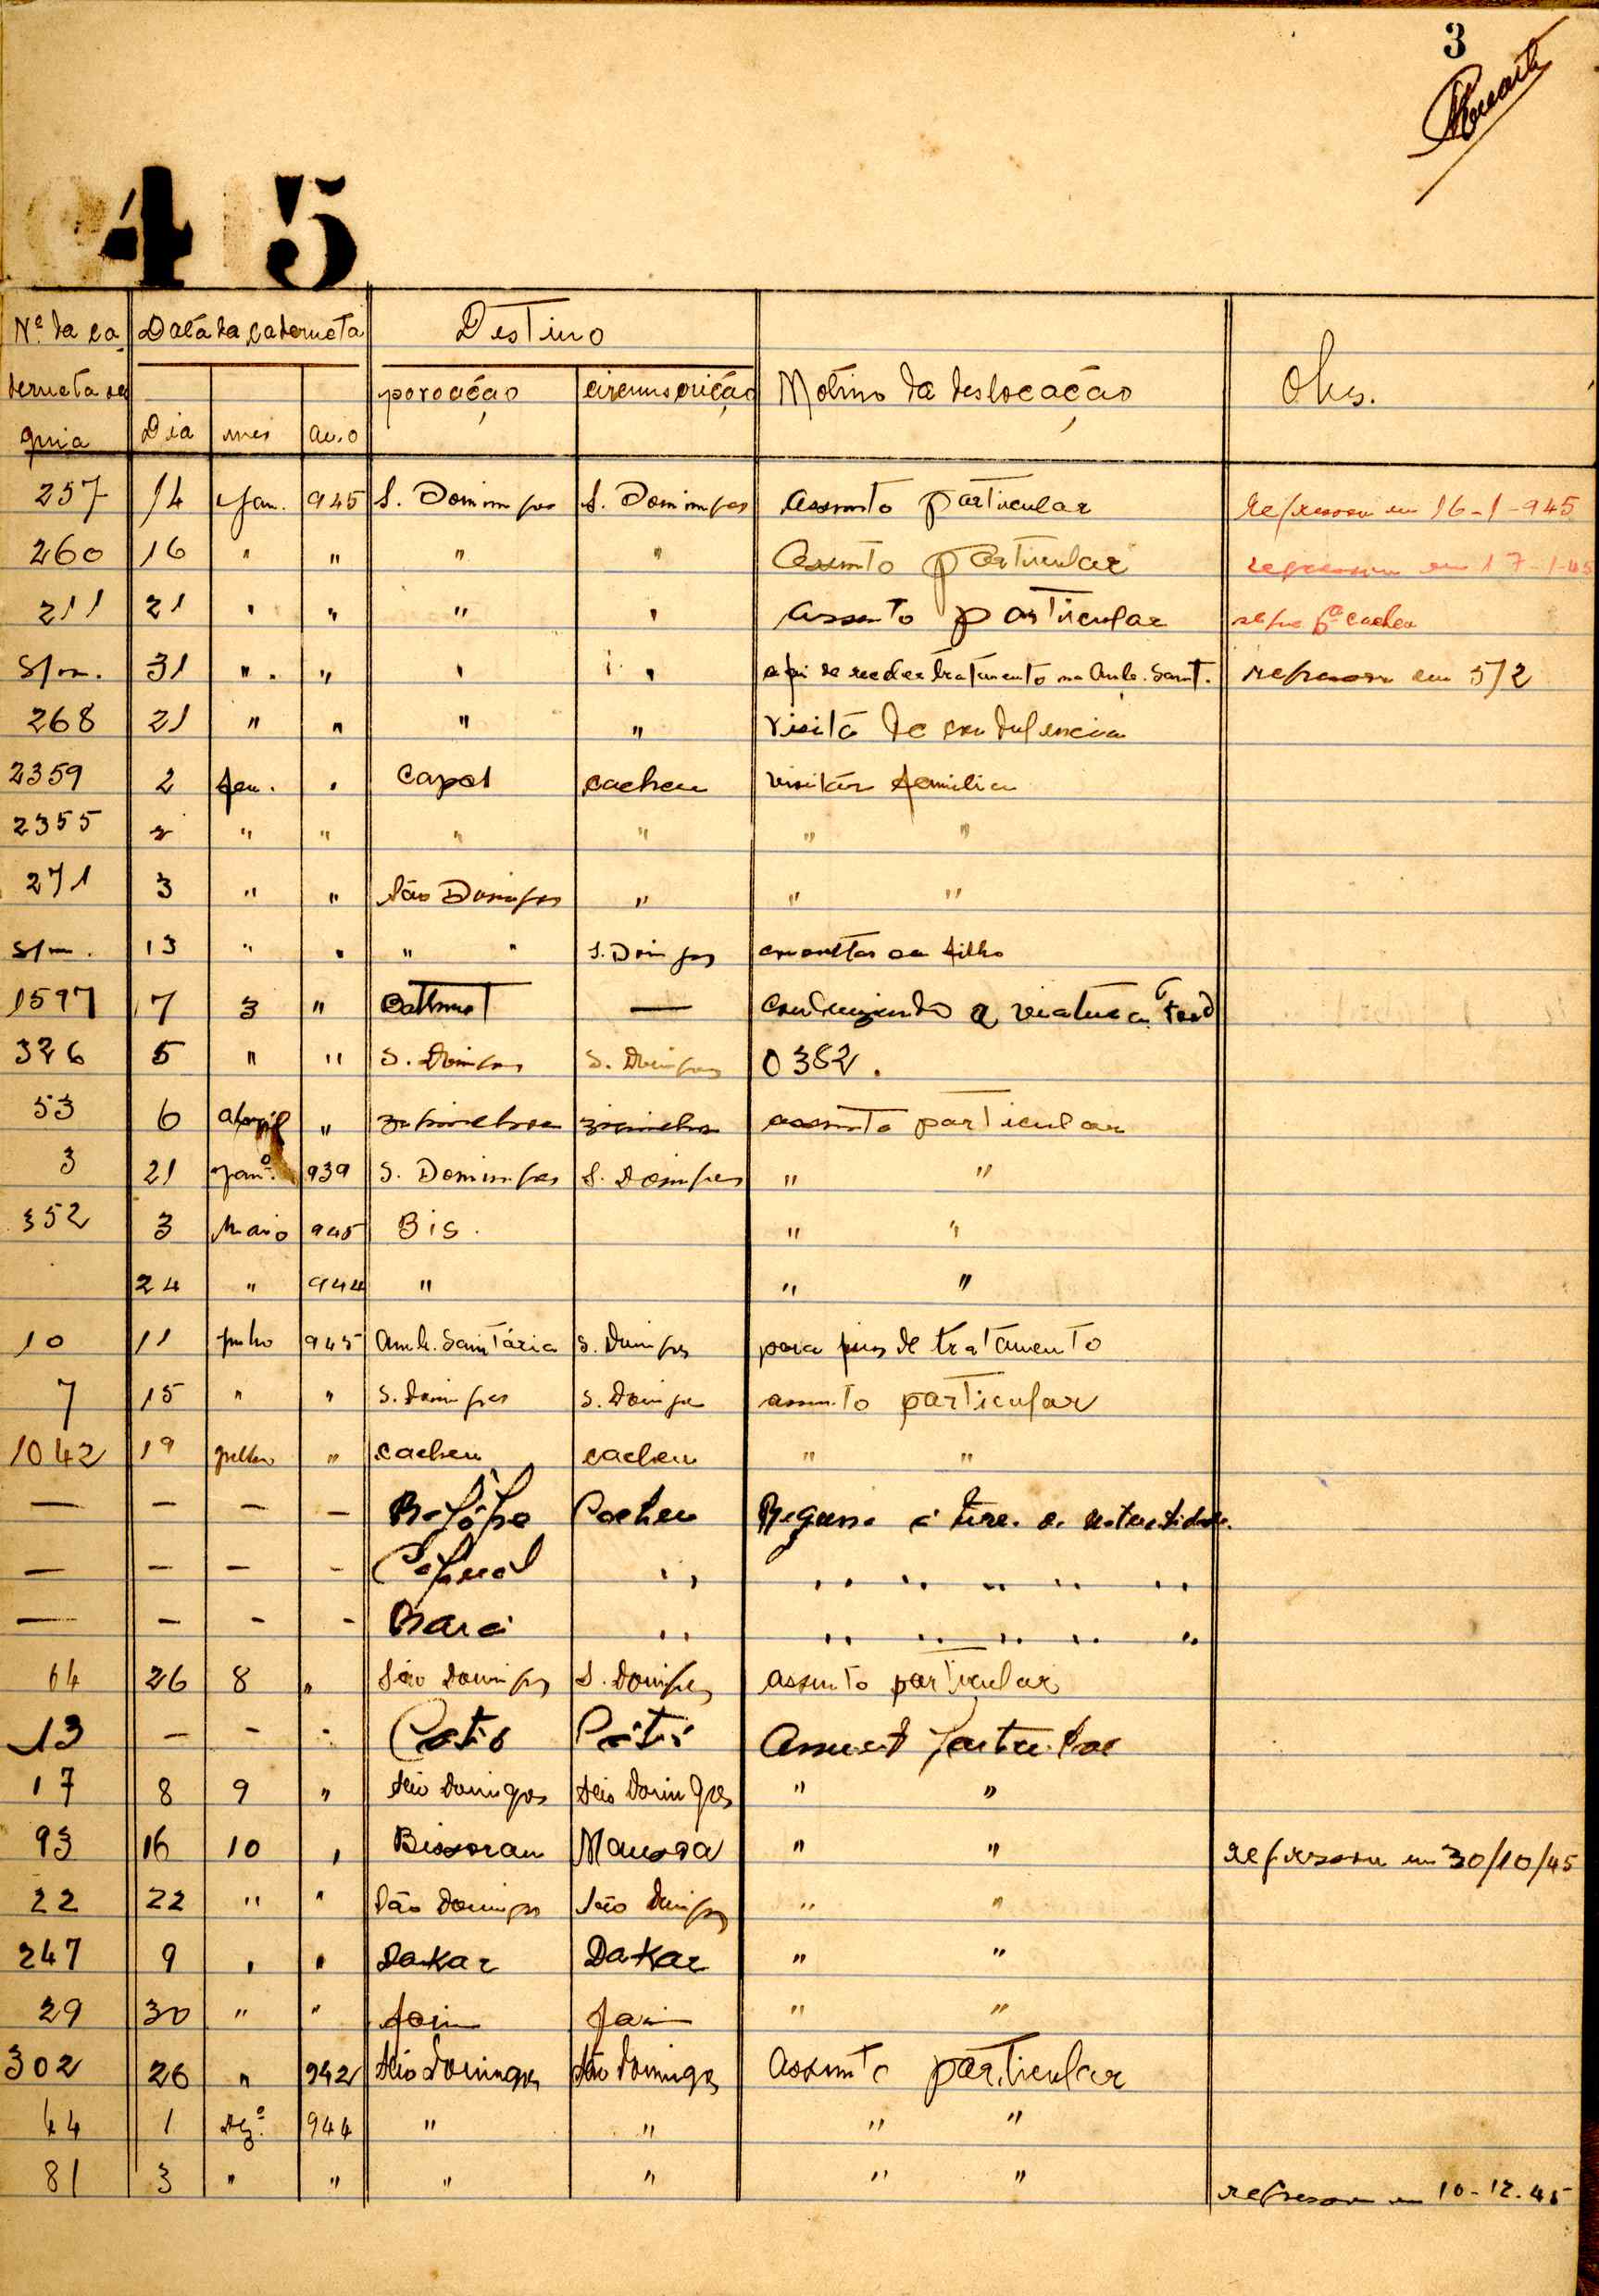 3
45
Nº da ca Data da caderneta Destino
derneta ou povoação circunscrição Motivo da deslocação Obs.
guia Dia mês ano
257 14 Jan. 945 S. Domingos S. Domingos Assunto particular regressou em 16-1-945
260 16 " " " " Assunto particular regressou em 17-1-45
211 21 " " " " Assunto particular cacheu
S/n. 31 " " " " a fim de receber tratamento na Amb. Sanit. regressou em 5/2
268 21 " " " " visita de
2359 2 Fev. " cacheu visitar familia
2355 2 " " " " " "
271 3 " " São Domingos " " "
S/n. 13 " " " " S. Domingos filho
1597 7 3 " — conduzindo a viatura Ford
326 5 " " S. Domingos S. Domingos 0382.
53 6 Abril " assunto particular
3 21 Janº. 939 S. Domingos S. Domingos " "
352 3 Maio 945 Bis. " "
24 " 944 " " "
10 11 Junho 945 Amb. Sanitária S. Domingos para fins de tratamento
7 15 " " S. Domingos S. Domingos assunto particular
1042 19 Julho " cacheu cacheu " "
— — — — Cacheu
— — — — " " " " " "
— — — — " " " " " "
64 26 8 " São Domingos S. Domingos assunto particular
13 — — " Catió Catió Assunto particular
17 8 9 " São Domingos São Domingos " "
93 16 10 " Bissoran Mansoa " " regressou em 30/10/45
22 22 " " São Domingos São Domingos " "
247 9 " " Dakar Dakar " "
29 30 " " Farim Farim " "
302 26 " 942 São Domingos São Domingos Assunto particular
44 1 Dezº. 944 " " " "
81 3 " " " " " " regressou em 10-12-45